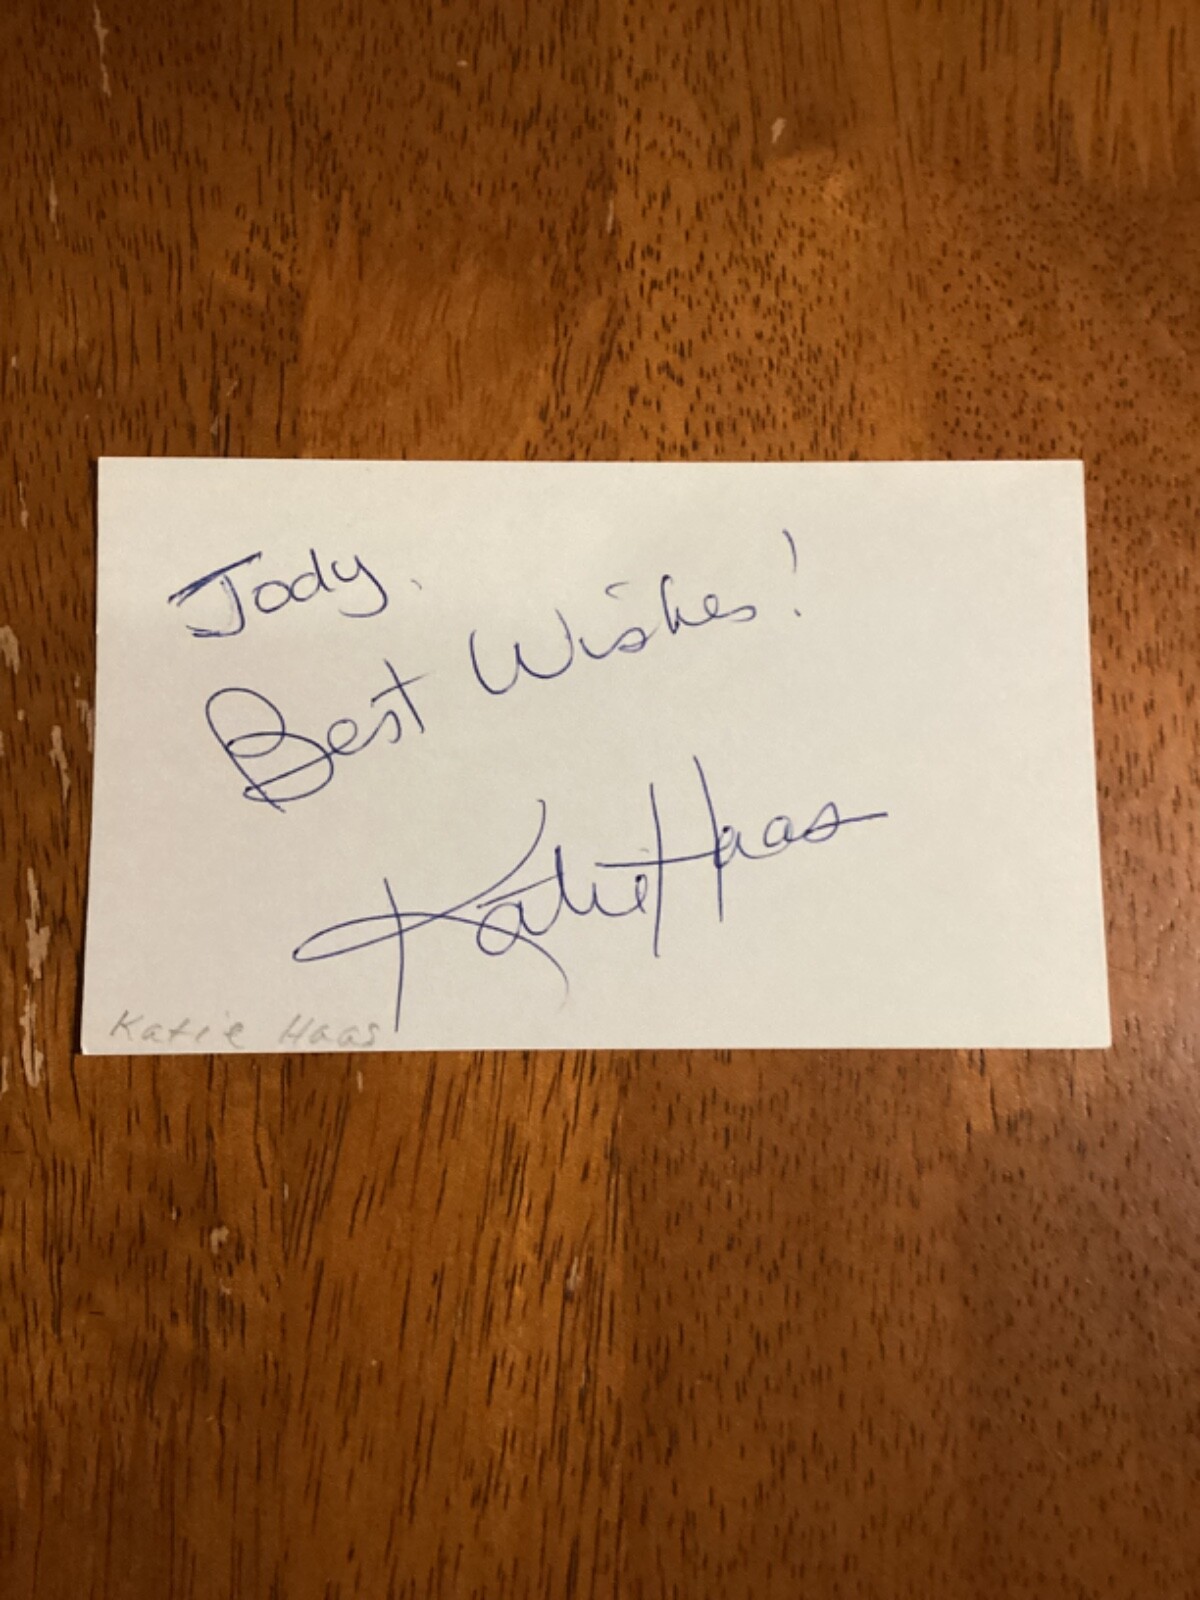 Jody,
Best Wishes!
Katie Haas
Katie Haas